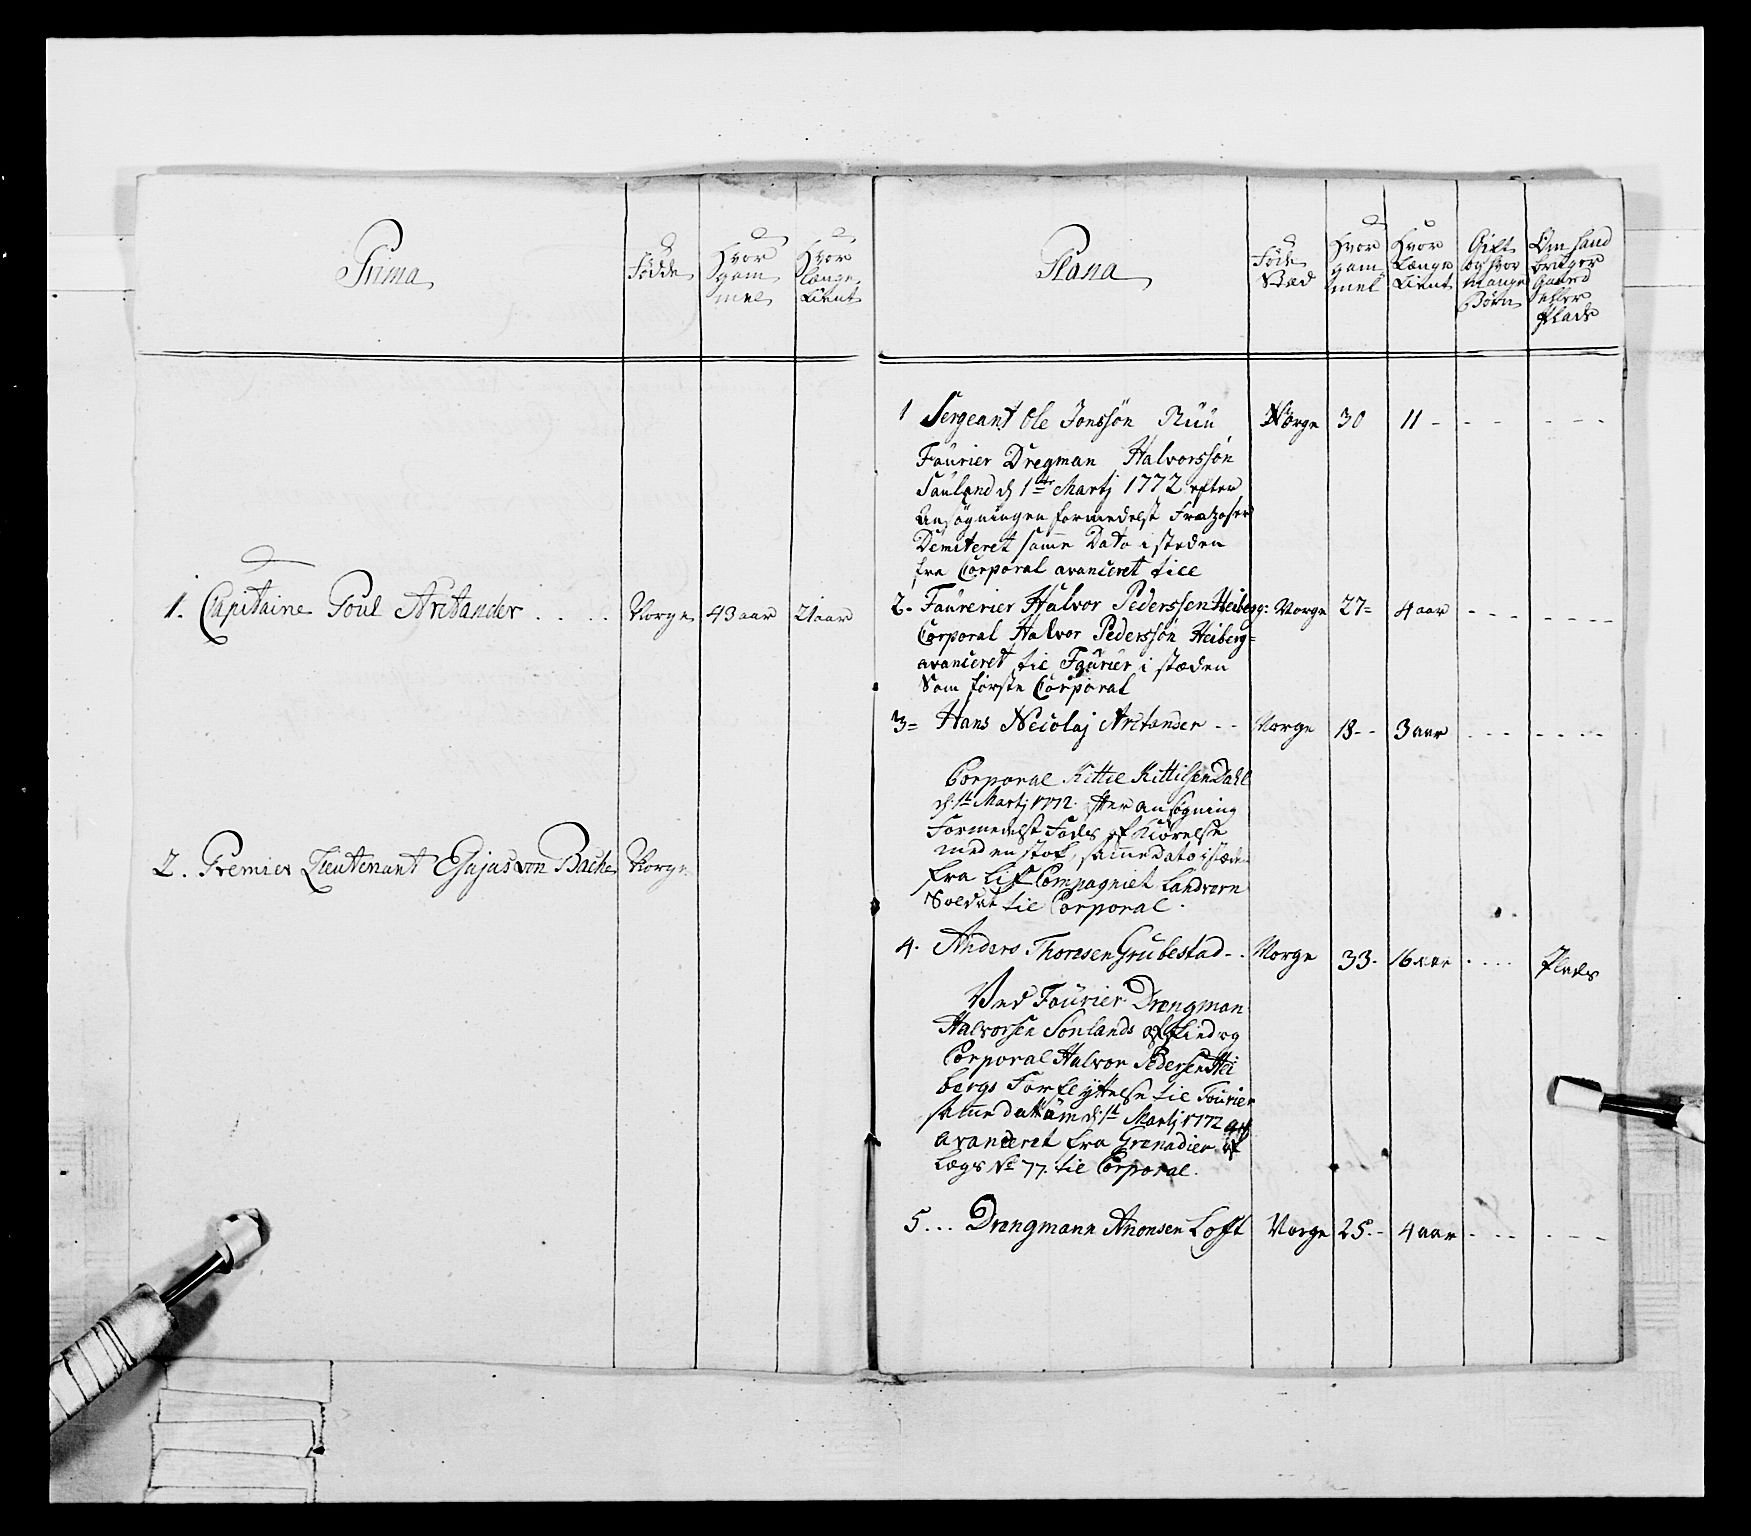 Prima
Fødde
Hvor
gam
mel
Hvor
længe
tient
1. Capitaine Poul Arctander
Norge
43 aar
21 aar
2. Premier Lieutenant Esajas von Bache
Norge
Plana
Føde
Stæd
Hvor
gam
mel
Hvor
Længe
tient
Gift
og hvor
mange
Børn
Om hand
bruger
Gaard
eller
Plads
1 Sergeant Ole Jonssøn Ruu
Norge
30
11 -
Faurier Dregman Halvorssøn
Sauland d 1te Martj 1772 efter
Ansøgningen formedelst
Demiteret samme Dato i steden
fra Corporal avanceret till
2- Faurerier Halvor Pederssen Heiberg:
Norge
27=
4 aar
Corporal Halvor Pederssøn Heiberg=
avanceret til Fourier i stæden
Som første Corporal
3= Hans Necolaj Arctander - -
Norge
18 - -
3 aar
Corporal Kittil Kittilsen Dahl
d: 1te Martj 1772. efter ansøgning
Formedelst Fods af Kiørelse
med en stok, samme dato i stæden
fra Lif Compagniet Landvern
Soldat til Corporal.
4. Anders Thoresen Grubestad - .
Norge
33.
16 aar
Plads
Ved Fourier Drengman
Halvorsen Sønlands afskied og
Corporal Halvor Pedersen Hei
bergs Forflyttelse til Fourier
samme datum d: 1te Martj 1772
avanceret fra Grenadier af
Lægs No 77. til Corporal.
5 ... Drengmann Anonsen Loft
Norge
25. -
4 aar